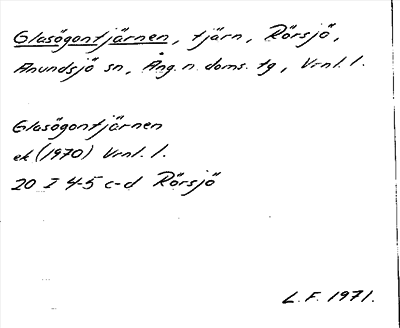 Glasögontjärnen, tjärn, Rörsjö,
Anundsjö sn, Ång. n. doms. tg, Vrnl. l.
Glasögontjärnen
ek (1970) Vrnl. l.
20 I 4-5 c-d Rörsjö
L.F. 1971.